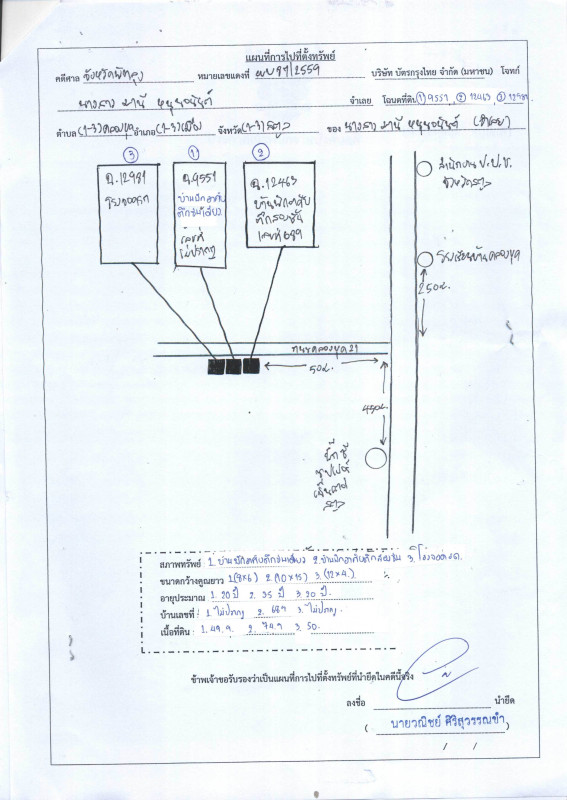 แผนที่การไปที่ตั้งทรัพย์
คดีศาล จังหวัดพัทลุง หมายเลขแดงที่ ผบ 97/2559 บริษัท บัตรกรุงไทย จำกัด (มหาชน) โจทก์
นางสาว มานี จำเลย โฉนดที่ดิน ① 9551, ② 12463 ③ 12981
ตำบล (1-3) คลองขุด อำเภอ (1-3) เมือง จังหวัด (1-3) สตูล ของ นางสาว มานี (จำเลย)
③ ① ②
ฉ.12981
โรงจอดรถ
ฉ.9551
บ้านพักอาศัย
ตึกชั้นเดียว
เลขที่
ไม่ปรากฏ
ฉ.12463
บ้านพักอาศัย
ตึกสองชั้น
เลขที่ 689
สำนักงาน ป.ป.ช.
จังหวัดสตูล
โรงเรียนบ้านคลองขุด
250ม.
ถนนคลองขุด 21
50ม.
450ม.
บิ๊กซี
ซุปเปอร์
เซ็นเตอร์
สตูล
สภาพทรัพย์ 1. บ้านพักอาศัยตึกชั้นเดียว 2. บ้านพักอาศัยตึกสองชั้น 3. โรงจอดรถ.
ขนาดกว้างคูณยาว 1.(8×6) 2.(10×15) 3.(12×4.)
อายุประมาณ 1. 20 ปี 2. 35 ปี 3. 20 ปี.
บ้านเลขที่ 1. ไม่ปรากฏ 2. 689 3. ไม่ปรากฏ.
เนื้อที่ดิน 1. 49.9. 2. 74.9 3. 50.
ข้าพเจ้าขอรับรองว่าเป็นแผนที่การไปที่ตั้งทรัพย์ที่นำยึดในคดีนี้จริง
ลงชื่อ นำยึด
( นายวณิชย์ ศิริสุวรรณขำ )
/ /